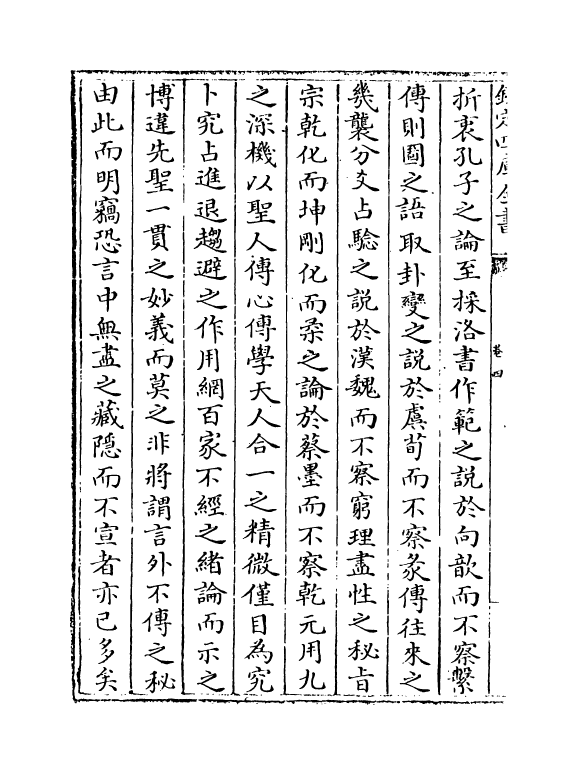 欽定四庫全書
卷四
折衷孔子之論至採洛書作範之説於向歆而不察繫
傳則圖之語取卦變之説於虞荀而不察彖傳往來之
幾襲分爻占驗之説於漢魏而不察窮理盡性之秘旨
宗乾化而坤剛化而柔之論於蔡墨而不察乾元用九
之深機以聖人傳心傳學天人合一之精微僅目為究
卜究占進退趨避之作用網百家不經之緒論而示之
博違先聖一貫之妙義而莫之非將謂言外不傳之秘
由此而明竊恐言中無盡之藏隱而不宣者亦已多矣